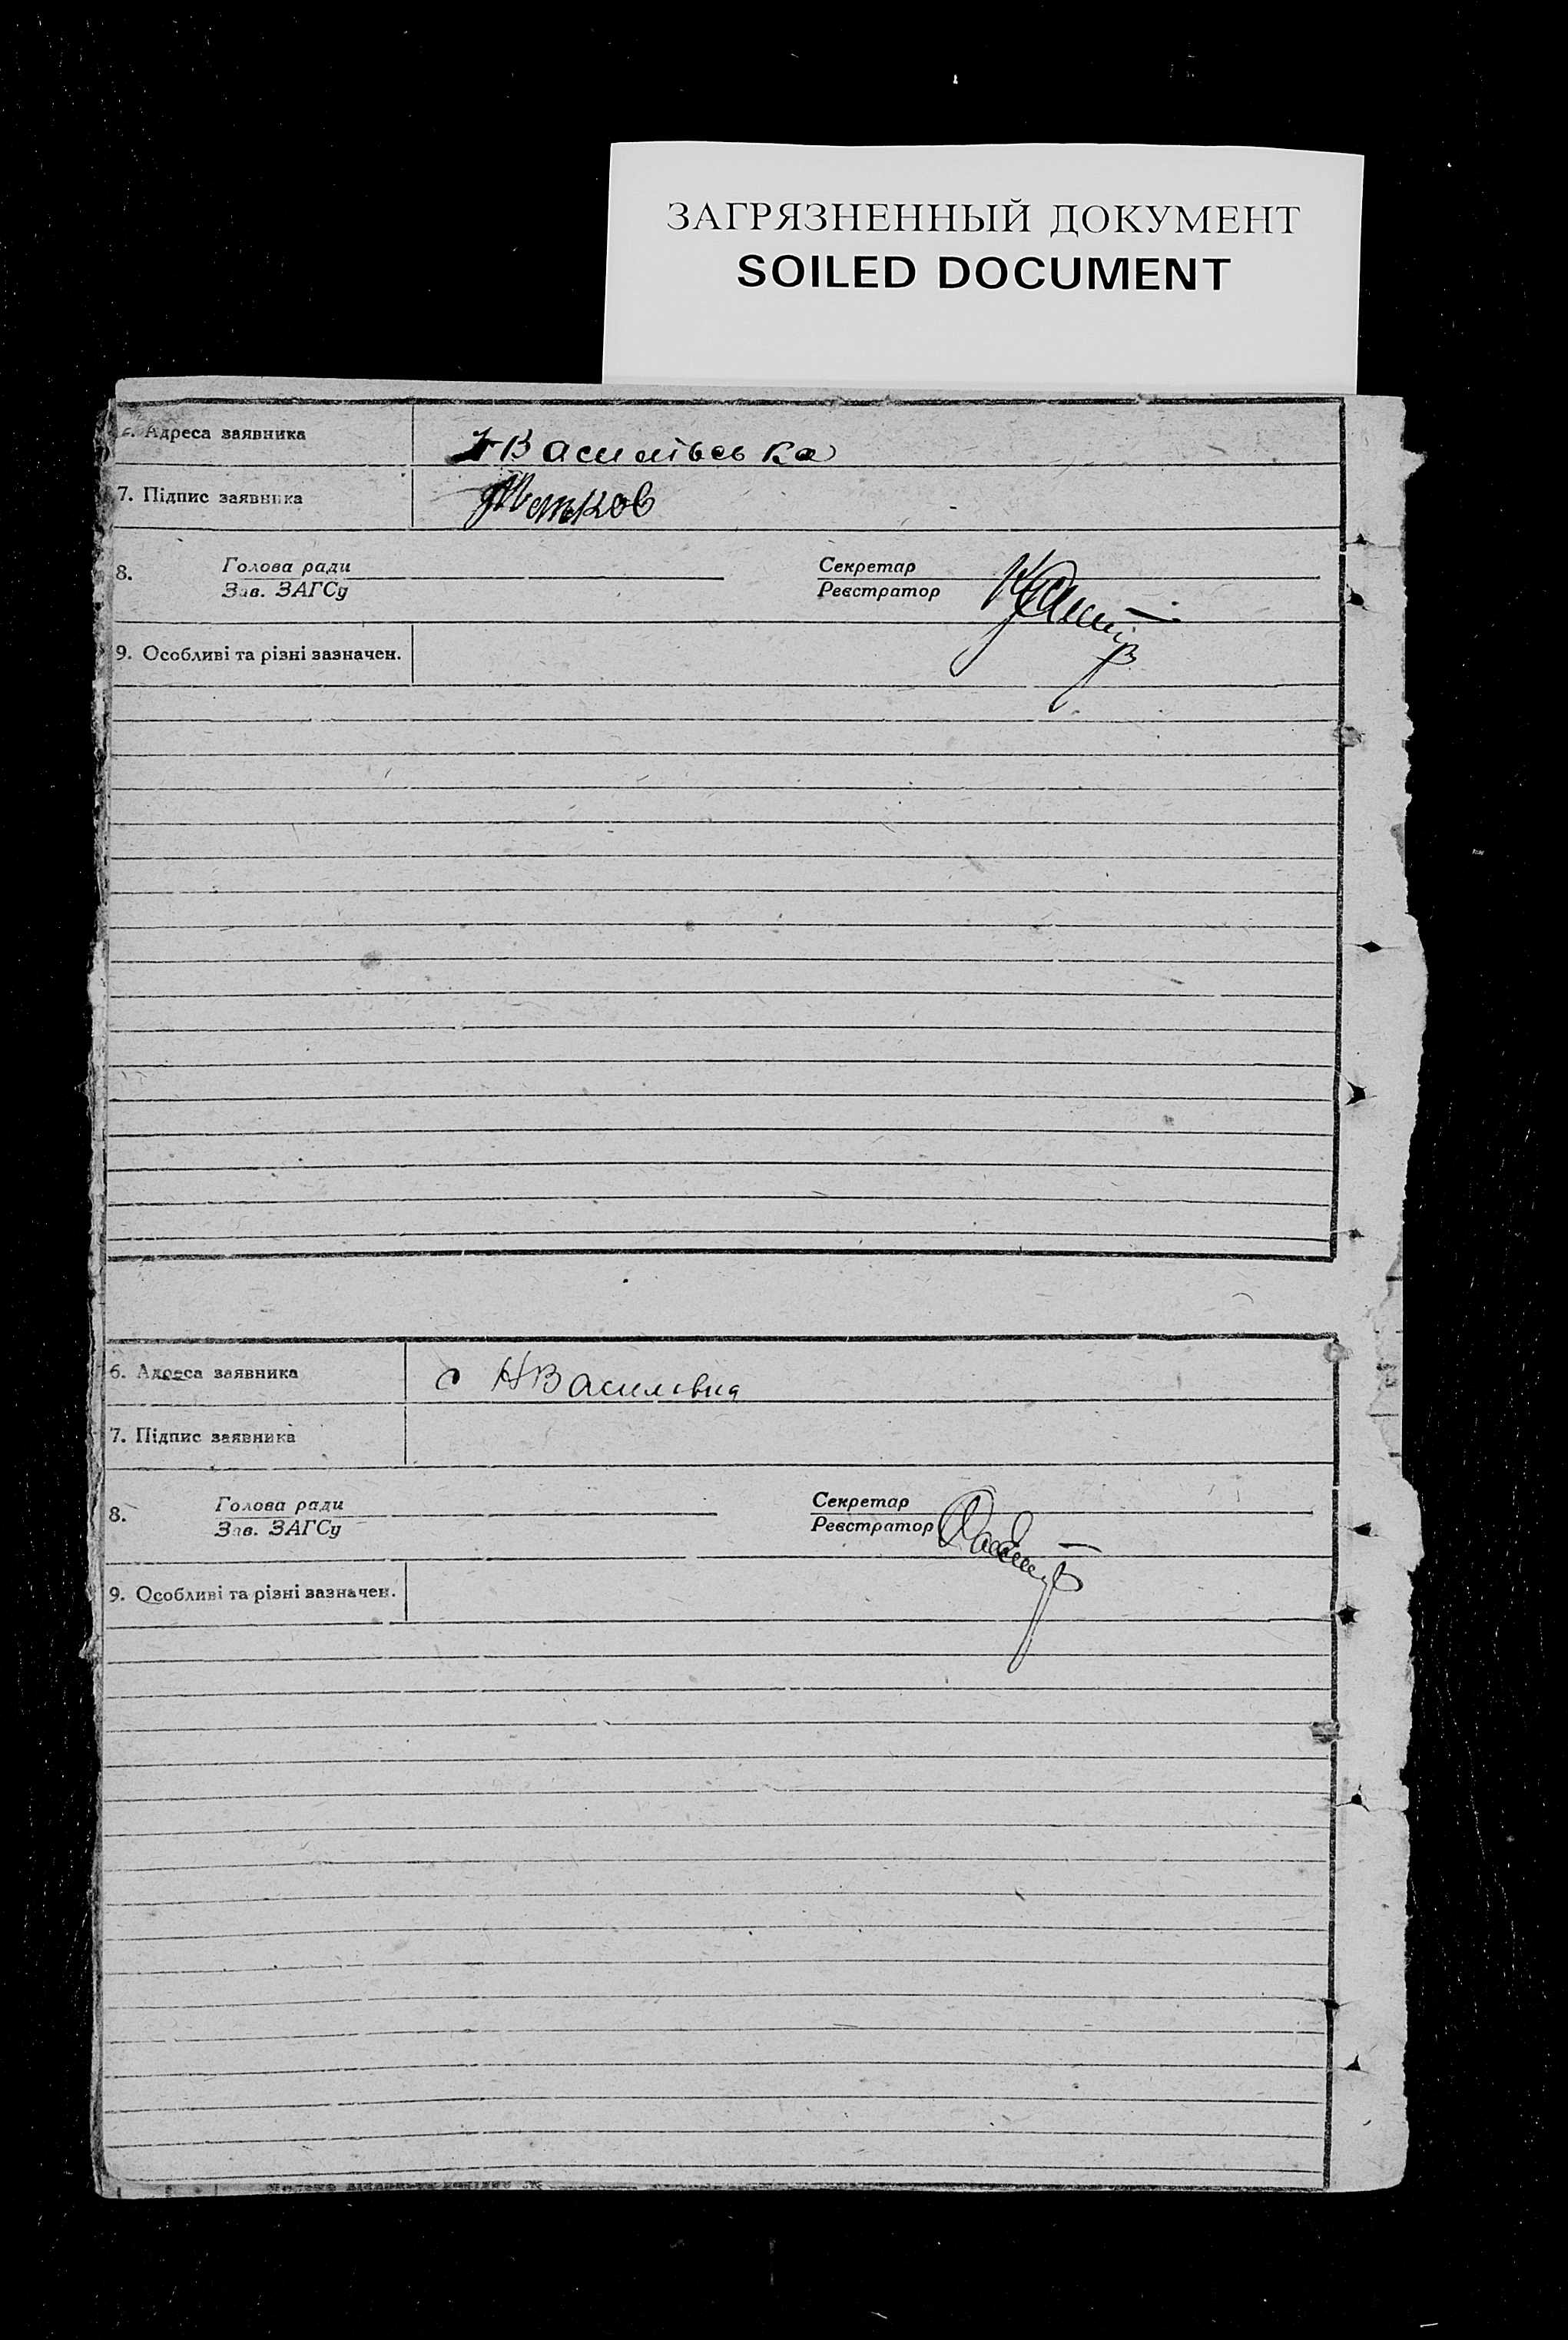 ЗАГРЯЗНЕННЫЙ ДОКУМЕНТ
SOILED DOCUMENT
Адреса заявника
Василівська
7. Підпис заявника
8. Голова ради Секретар
Зав. ЗАГСу Реєстратор
9. Особливі та різні зазначен.
6. Адреса заявника
с НВасилівка
7. Підпис заявника
8. Голова ради Секретар
Зав. ЗАГСу Реєстратор
9. Особливі та різні зазначен.